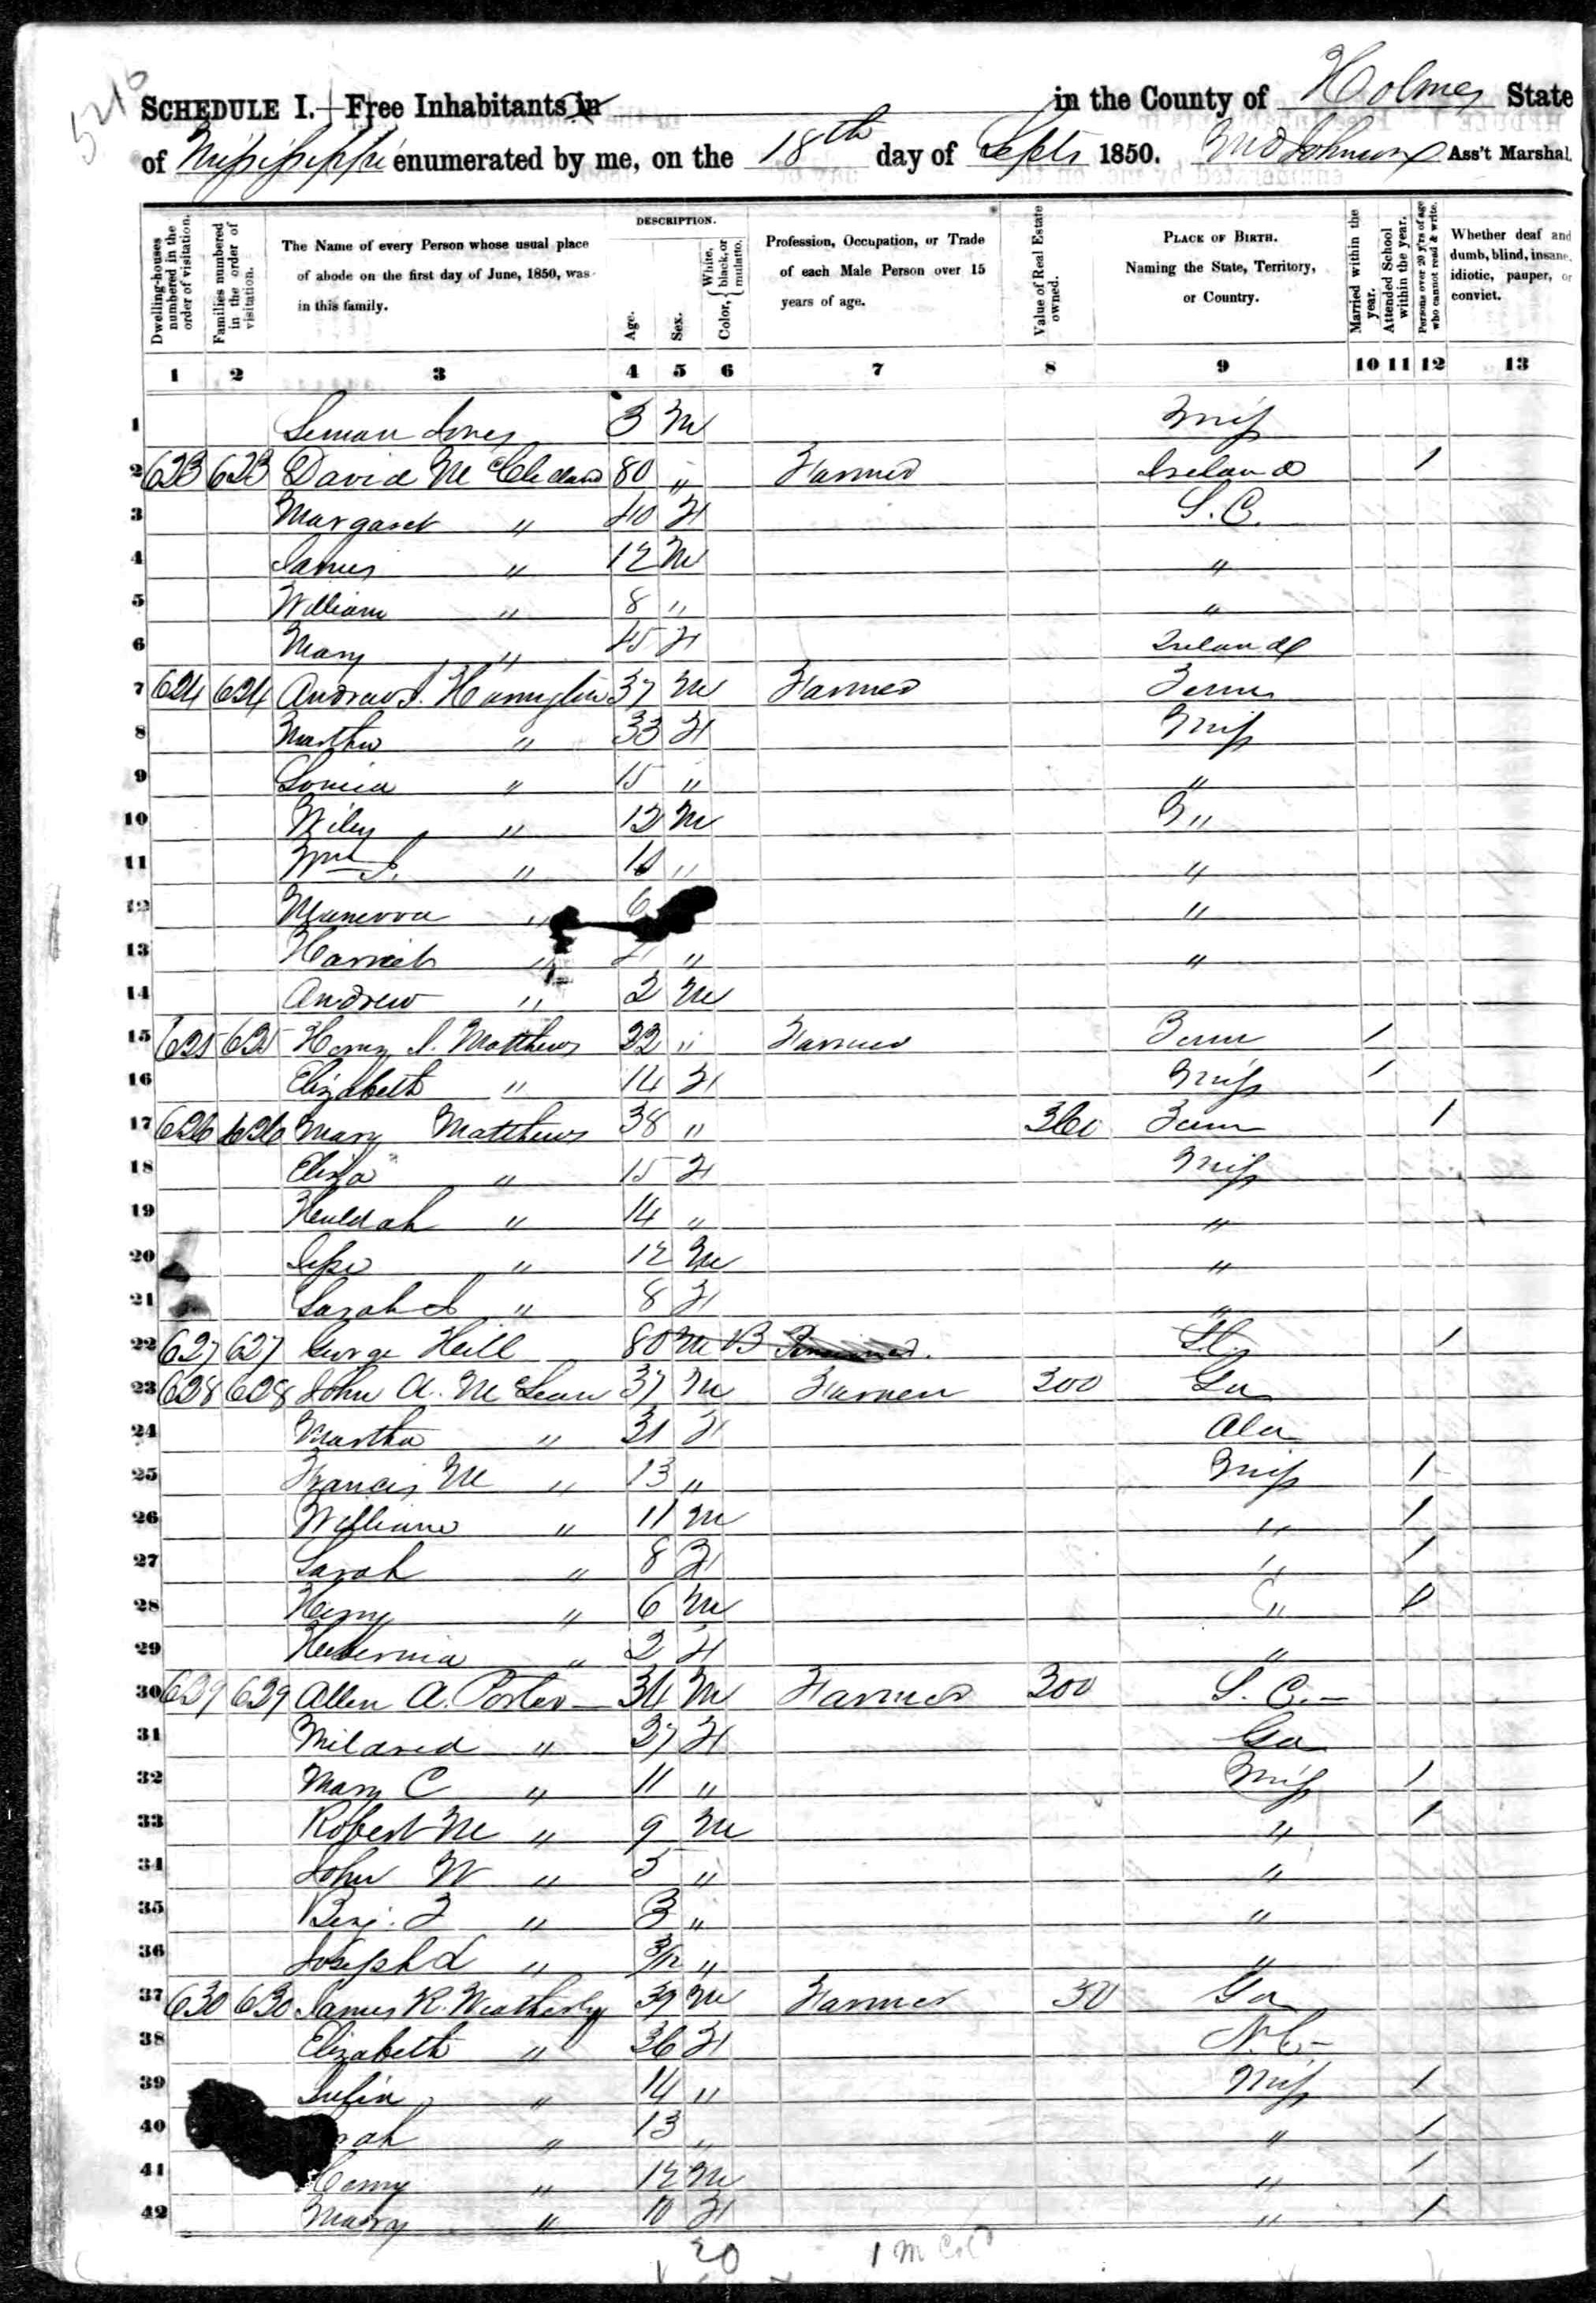 5210
SCHEDULE I. Free Inhabitants in in the County of Holmes State
of Mississippi enumerated by me, on the 18th day of Septr 1850. Johnson Ass't Marshal.
Dwelling-houses numbered in the order of visitation. Families numbered in the order of visitation. The Name of every Person whose usual place of abode on the first day of June, 1850, was in this family. DESCRIPTION. Age. Sex. Color, { White, black, or mulatto. Profession, Occupation, or Trade of each Male Person over 15 years of age. Value of Real Estate owned. PLACE OF BIRTH. Naming the State, Territory, or Country. Married within the year. Attended School within the year. Persons over 20 y'rs of age who cannot read & write. Whether deaf and dumb, blind, insane, idiotic, pauper, or convict.
1 2 3 4 5 6 7 8 9 10 11 12 13
1 Jones 3 M Miss
2 623 623 David McCleland 80 " Farmer Ireland 1
3 Margaret " 40 F S. C.
4 James " 12 M "
5 William " 8 " "
6 Mary " 45 F Ireland
7 624 624 Andrew J. 37 M Farmer Tenn
8 Martha " 33 F Miss
9 " 15 " "
10 Wiley " 12 M "
11 Wm J. " 10 " "
12 " 6 "
13 Harriet " "  "
14 Andrew " 2 M
15 625 625 Henry J. Matthews 22 " Farmer Tenn 1
16 Elizabeth " 14 F Miss 1
17 626 626 Mary Matthews 38 " 360 Tenn 1
18 Eliza " 15 F Miss
19 Huldah " 14 " "
20 " 12 M "
21 Sarah J " 8 F "
22 627 627 George Hill 80 M B 1
23 628 628 John A. McLean 37 M Farmer 300 Ga
24 Martha " 31 F Ala
25 Francis M " 13 " Miss 1
26 William " 11 M " 1
27 Sarah " 8 F " 1
28 Henry " 6 M " 1
29 " 2 F "
30 629 629 Allen A. Porter 34 M Farmer 200 S. C.
31 Mildred " 27 F Ga
32 Mary C " 11 " Miss 1
33 Robert M " 9 M " 1
34 John W " 5 " "
35 Benj. F " 3 " "
36 Joseph L " 3/12 " "
37 630 630 James R. Weatherby 39 M Farmer 50 Ga
38 Elizabeth " 36 F N. C.
39 " 14 " Miss 1
40 rah " 13 " " 1
41 Henry " 12 M " 1
42 Mary " 10 F " 1
20 1 M Col